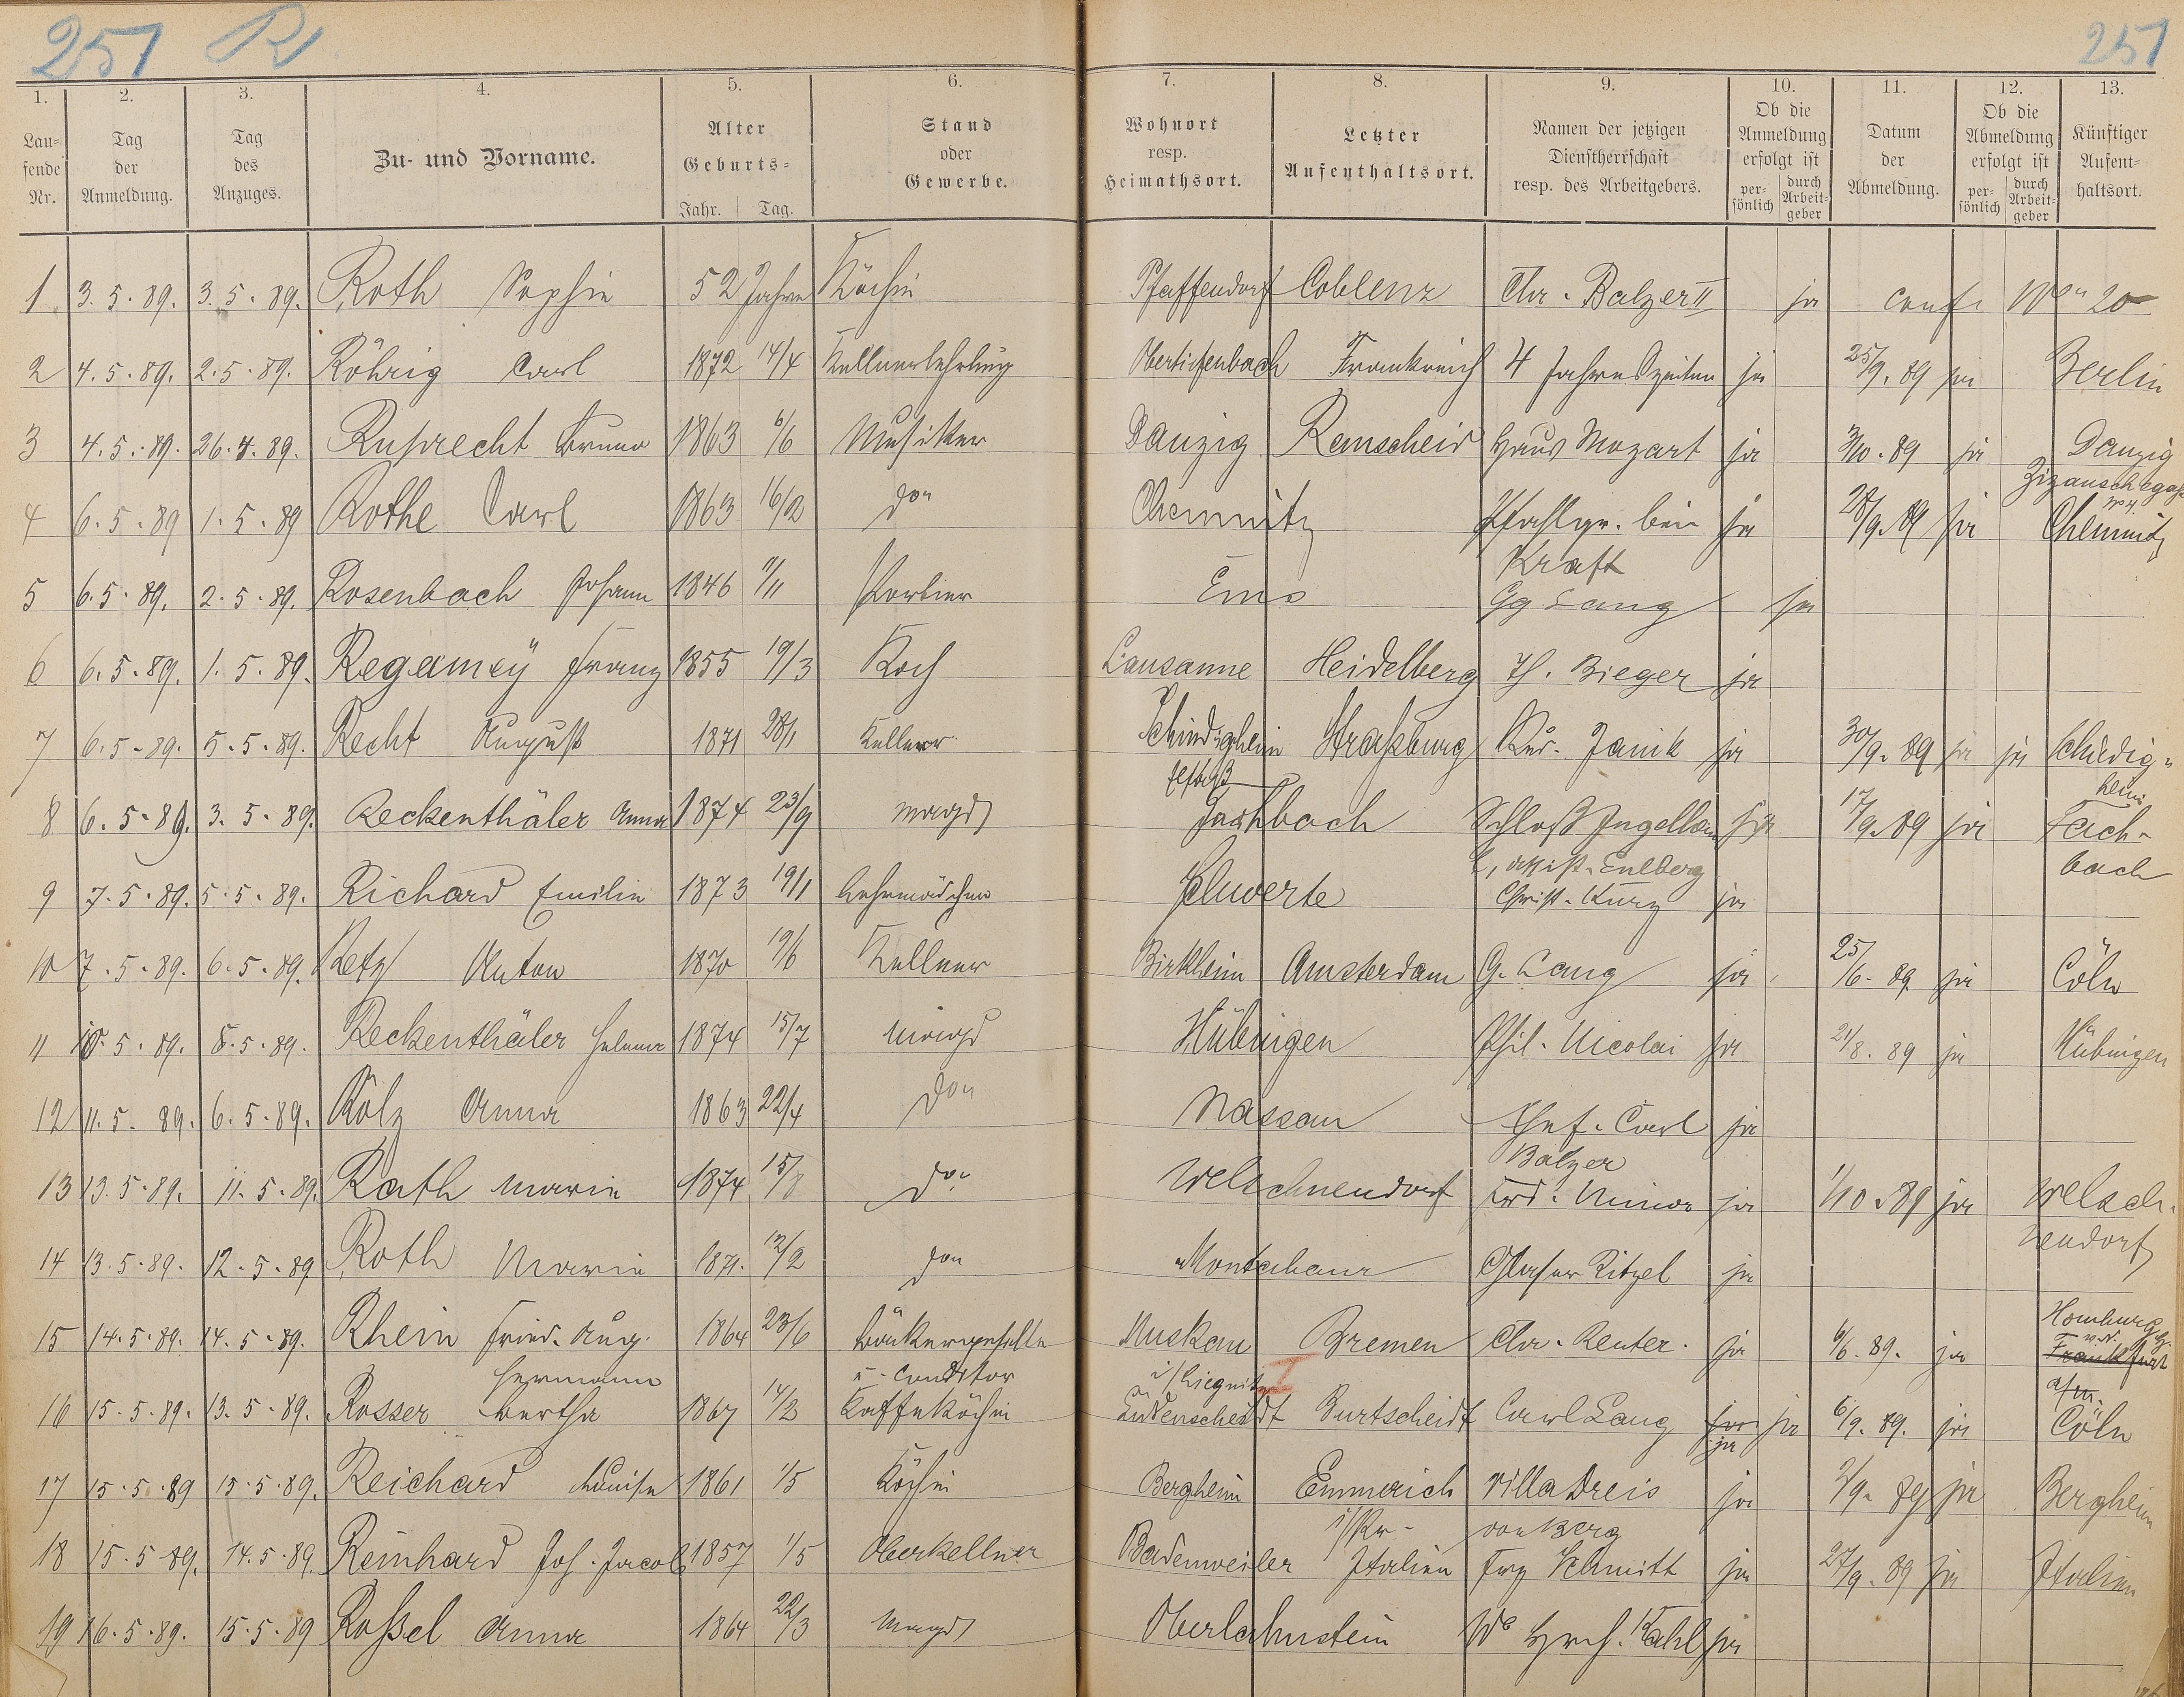 251 R
251
1. 2. 3. 4. 5. 6. 7. 8. 9. 10. 11. 12. 13.
Lau=
fende
Nr.
Tag
der
Anmeldung.
Tag
des
Anzuges.
Zu- und Vorname.
Alter
Geburts=
Jahr. Tag.
Stand
oder
Gewerbe.
Wohnort
resp.
Heimathsort.
Letzter
Aufenthaltsort.
Namen der jetzigen
Dienstherrschaft
resp. des Arbeitgebers.
Ob die
Anmeldung
erfolgt ist
per-
sönlich
durch
Arbeit-
geber
Datum
der
Abmeldung.
Ob die
Abmeldung
erfolgt ist
per-
sönlich
durch
Arbeit-
geber
Künftiger
Aufent-
haltsort.
1 3.5.89. 3.5.89. Roth Sophie 52 Jahre Köchin Pfaffendorf Coblenz Chr. Balzer II ja conf. 20
2 4.5.89. 2.5.89. Röhrig Carl 1872 14/4 Kellnerlehrling Obertiefenbach Frankreich 4 Jahreszeiten ja 25/9.89 ja Berlin
3 4.5.89. 26.4.89. Ruprecht Bruno 1863 6/6 Musiker Danzig Remscheid Haus Mozart ja 3/10.89 ja Danzig
4 6.5.89 1.5.89 Rothe Carl 1863 16/2 do Chemnitz bei ja 28/9.89 ja Chemnitz
Kraft
5 6.5.89. 2.5.89. Rosenbach Johann 1846 1/11 Portier Ems Gg Lang ja
6 6.5.89. 1.5.89. Regamey Franz 1855 19/3 Koch Lausanne Heidelberg Th. Bieger ja
7 6.5.89. 5.5.89. Recht August 1871 28/1 Kellner Straßburg Janik ja 30/9.89 ja ja
heim
8 6.5.89. 3.5.89. Reckenthäler Anna 1874 23/9 Magd Fachbach Schloß ja 17/9.89 ja Fach-
bach
9 7.5.89. 5.5.89. Richard Emilie 1873 19/1 Lehrmädchen Schwerte Christ. Kurz ja
10 7.5.89. 6.5.89. Retz Anton 1870 Kellner Birkheim Amsterdam G. Lang ja 25/6.89 ja Cöln
11 10.5.89. 8.5.89. Reckenthäler Helene 1874 15/7 Magd Hübingen Phil. Nicolai ja 21/8.89 ja Hübingen
12 11.5.89. 6.5.89. Kölz Anna 1863 22/4 do Nassau Carl ja
Balzer
13 13.5.89. 11.5.89. Rath Marie 1874 15/8 do Welschneudorf ja 1/10.89 ja Welsch-
neudorf
14 13.5.89. 12.5.89 Roth Marie 1871. 12/2 do Montabaur Glaser Ritzel ja
15 14.5.89. 14.5.89. Rhein Fried. Aug. 1864 23/6 Bäckergeselle Muskau Bremen Chr. Reuter. ja 6/6.89. ja Homburg
Hermann u. Conditor i/Liegnitz Frankfurt
a/m.
16 15.5.89. 13.5.89. Rosser Bertha 1867 14/2 Kaffeköchin Lüdenscheidt Burtscheidt Carl Lang ja ja 6/9.89. ja Cöln
17 15.5.89 15.5.89. Reichard Louise 1861 1/5 Köchin Bergheim Emmerich Villa Dreis ja 2/9.89 ja Bergheim
von Berg
18 15.5.89. 14.5.89. Reinhard Joh. Jacob 1857 1/5 Oberkellner Badenweiler Italien Frz Schmitt ja 27/9.89 ja Italien
19 16.5.89. 15.5.89 Roßel Anna 1864 22/3 Magd Oberlahnstein We Kahl ja